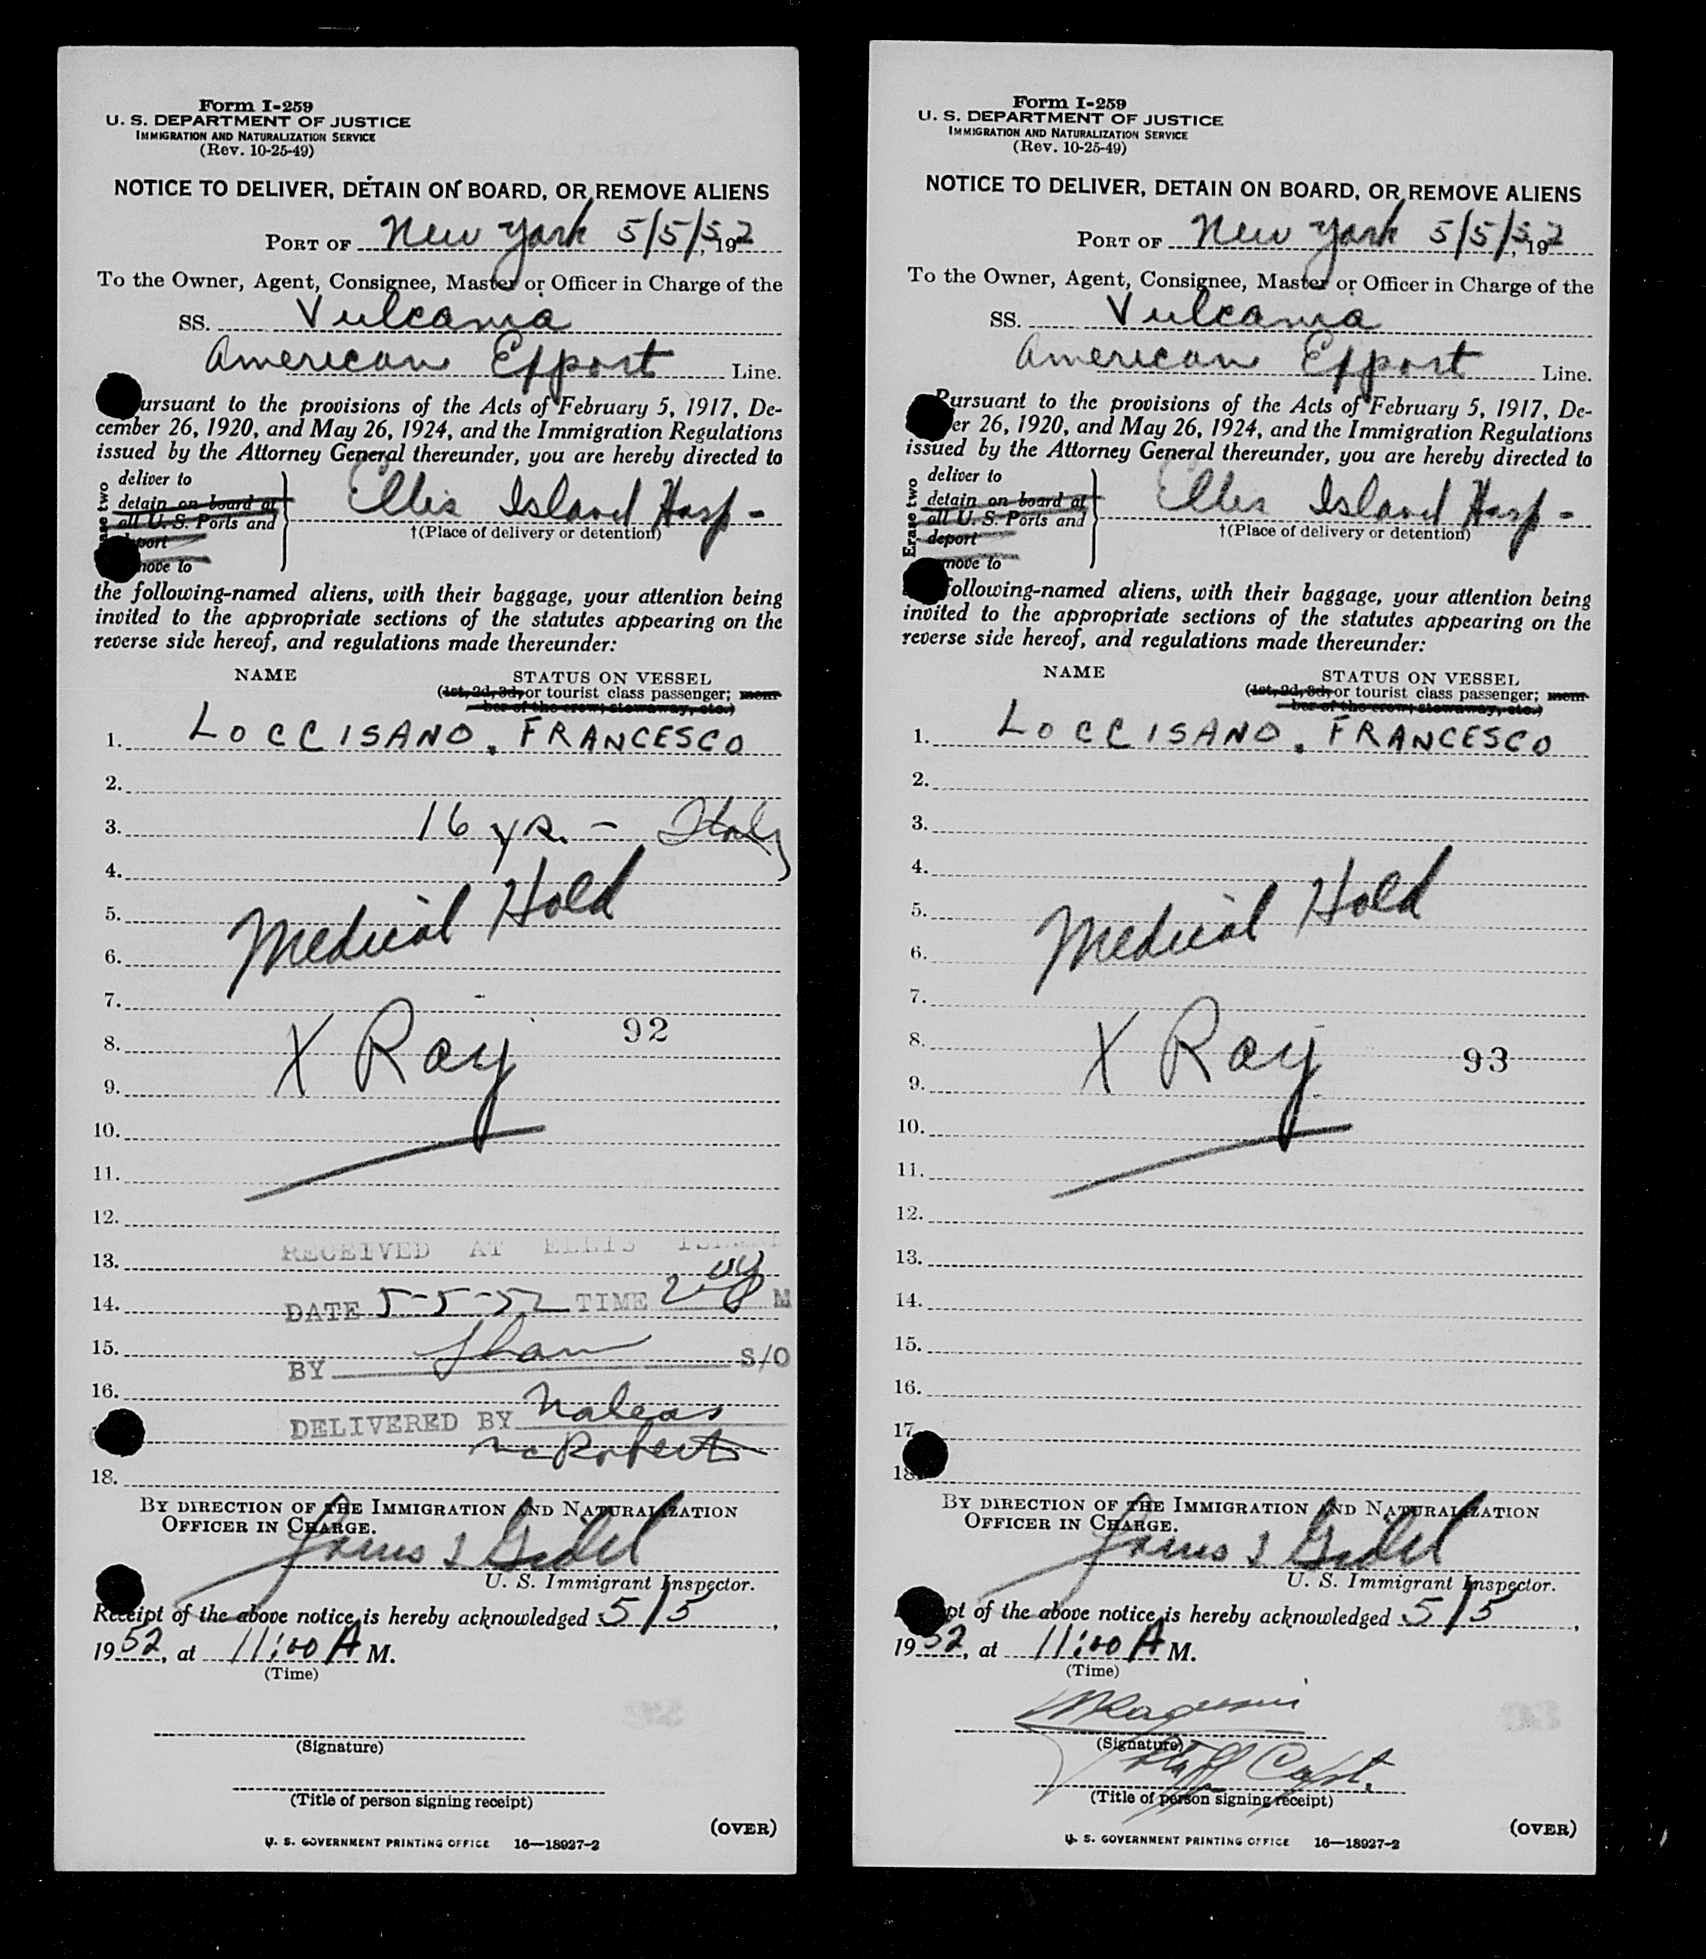 Form I-259
U. S. DEPARTMENT OF JUSTICE
IMMIGRATION AND NATURALIZATION SERVICE
(Rev. 10-25-49)
NOTICE TO DELIVER, DETAIN ON BOARD, OR REMOVE ALIENS
PORT OF New York 5/5/52, 19
To the Owner, Agent, Consignee, Master or Officer in Charge of the
SS. Vulcania
American Export Line.
ursuant to the provisions of the Acts of February 5, 1917, De-
cember 26, 1920, and May 26, 1924, and the Immigration Regulations
issued by the Attorney General thereunder, you are hereby directed to
deliver to
detain on board at
all U. S. Ports and
port
move to
Ellis Island Hosp-
†(Place of delivery or detention)
the following-named aliens, with their baggage, your attention being
invited to the appropriate sections of the statutes appearing on the
reverse side hereof, and regulations made thereunder:
NAME STATUS ON VESSEL
(1st, 2d, 3d, or tourist class passenger; mem-
ber of the crew; stowaway, etc.)
1. LOCCISANO, FRANCESCO
2.
3. 16 yr. - Italy
4.
5. Medical Hold
6.
7.
8. X Ray 92
9.
10.
11.
12.
13. RECEIVED AT ELLIS ISLAND
14. DATE 5-5-52 TIME M
15. BY Shaw S/O
16.
DELIVERED BY
McRoberts
18.
BY DIRECTION OF THE IMMIGRATION AND NATURALIZATION
OFFICER IN CHARGE.
U. S. Immigrant Inspector.
Receipt of the above notice is hereby acknowledged 5/5,
1952, at 11:00 A M.
(Time)
(Signature)
(Title of person signing receipt)
(OVER)
U. S. GOVERNMENT PRINTING OFFICE 16—18927-2
Form I-259
U. S. DEPARTMENT OF JUSTICE
IMMIGRATION AND NATURALIZATION SERVICE
(Rev. 10-25-49)
NOTICE TO DELIVER, DETAIN ON BOARD, OR REMOVE ALIENS
PORT OF New York 5/5/52, 19
To the Owner, Agent, Consignee, Master or Officer in Charge of the
SS. Vulcania
American Export Line.
Pursuant to the provisions of the Acts of February 5, 1917, De-
er 26, 1920, and May 26, 1924, and the Immigration Regulations
issued by the Attorney General thereunder, you are hereby directed to
Erase two
deliver to
detain on board at
all U. S. Ports and
deport
move to
Ellis Island Hosp-
†(Place of delivery or detention)
following-named aliens, with their baggage, your attention being
invited to the appropriate sections of the statutes appearing on the
reverse side hereof, and regulations made thereunder:
NAME STATUS ON VESSEL
(1st, 2d, 3d, or tourist class passenger; mem-
ber of the crew; stowaway, etc.)
1. LOCCISANO, FRANCESCO
2.
3.
4.
5. Medical Hold
6.
7.
8. X Ray 93
9.
10.
11.
12.
13.
14.
15.
16.
17.
18.
BY DIRECTION OF THE IMMIGRATION AND NATURALIZATION
OFFICER IN CHARGE.
U. S. Immigrant Inspector.
pt of the above notice is hereby acknowledged 5/5,
1952, at 11:00 A M.
(Time)
(Signature)
Staff Capt.
(Title of person signing receipt)
(OVER)
U. S. GOVERNMENT PRINTING OFFICE 16—18927-2